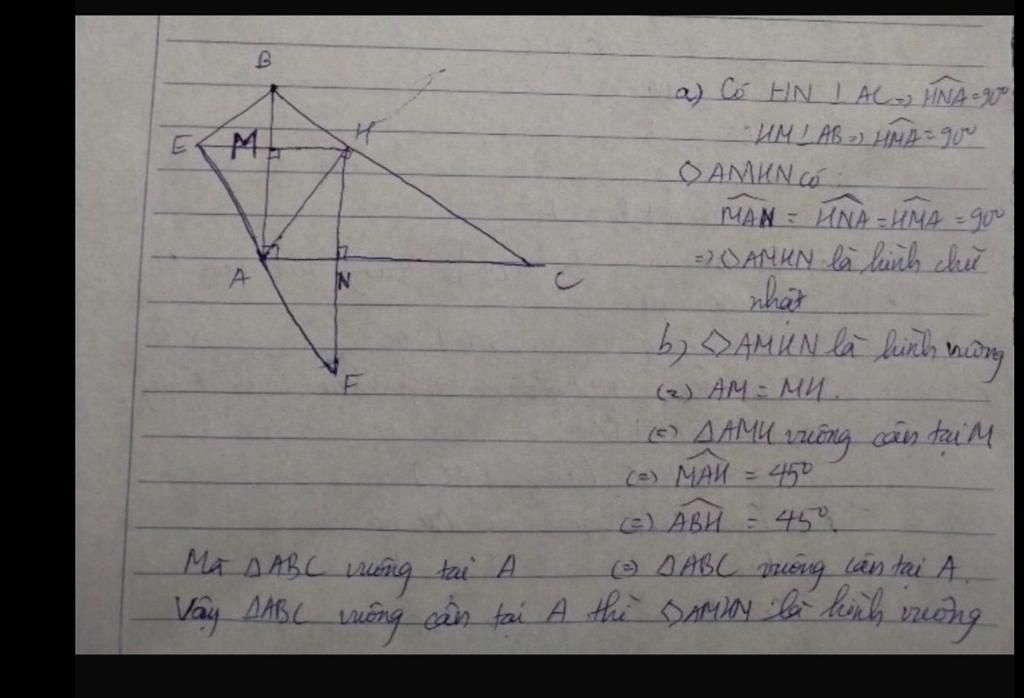 B
E
M
H
A
N
C
F
a) Có HN ⊥ AC => \widehat{HNA} = 90°
HM ⊥ AB => \widehat{HMA} = 90°
◇AMHN có:
\widehat{MAN} = \widehat{HNA} = \widehat{HMA} = 90°
=> ◇AMHN là hình chữ
nhật
b) ◇AMHN là hình vuông
(=) AM = MH.
(=) ΔAMH vuông cân tại M
(=) \widehat{MAH} = 45°
(=) \widehat{ABH} = 45°.
Mà ΔABC vuông tại A (=) ΔABC vuông cân tại A.
Vậy ΔABC vuông cân tại A thì ◇AMHN là hình vuông